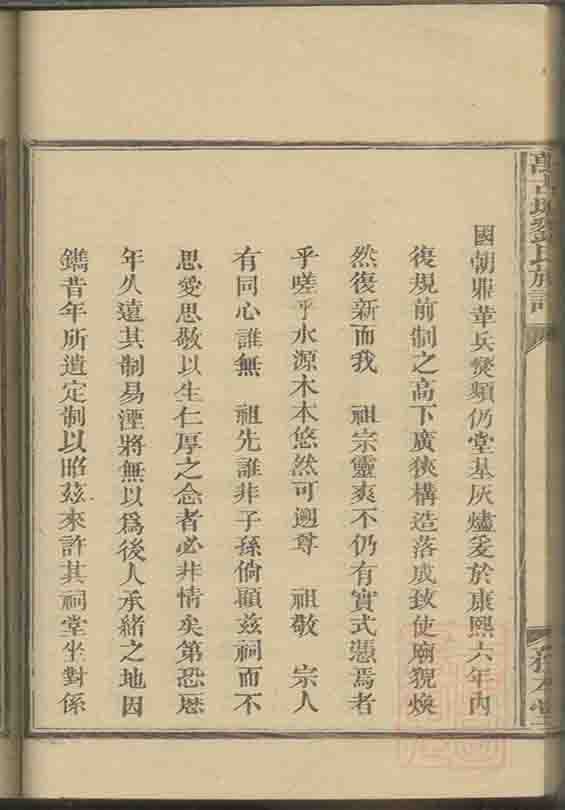 國朝鼎革兵燹頻仍堂基灰燼爰於康熙六年內
復規前制之高下廣狹構造落成致使廟貌煥
然復新而我 祖宗靈爽不仍有實式憑焉者
乎嗟乎水源木本悠然可遡尊 祖敬 宗人
有同心誰無 祖先誰非子孫倘顧茲祠而不
思愛思敬以生仁厚之念者必非情矣第恐歷
年久遠其制易湮將無以爲後人承緒之地因
鐫昔年所遺定制以昭茲來許其祠堂坐對係
劉氏族譜